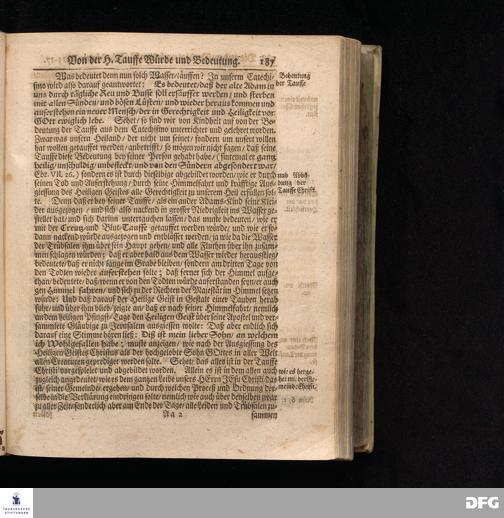 Von der H. Tauffe Würde und Bedeutung. 187
Was bedeutet denn nun solch Wasser-täuffen? In unserm Catechi-
smo wird also darauf geantwortet: Es bedeutet/ daß der alte Adam in
uns durch tägliche Reu und Busse soll ersäuffet werden/ und sterben
mit allen Sünden/ und bösen Lüsten/ und wieder heraus kommen und
auferstehen ein neuer Mensch/ der in Gerechtigkeit und Heiligkeit vor
GOtt ewiglich lebe. Sehet/ so sind wir von Kindheit auf von der Be-
deutung der Tauffe aus dem Catechismo unterrichtet und gelehret worden.
Zwar was unsern Heiland/ der nicht um seinet/ sondern um unsert willen
hat wollen getauffet werden/ anbetrifft/ so mögen wir nicht sagen/ daß seine
Tauffe diese Bedeutung bey seiner Person gehabt habe/ (sintemal er ganz
heilig/ unschuldig/ unbefleckt und von den Sündern abgesondert war/
Ebr. VII. 26.) sondern es ist durch dieselbige abgebildet worden/ wie er durch
seinen Tod und Auferstehung/ durch seine Himmelfahrt und kräfftige Aus-
giessung des Heiligen Geistes alle Gerechtigkeit zu unserm Heil erfüllen sol-
te. Denn daß er bey seiner Tauffe/ als ein ander Adams-Kind seine Klei-
der ausgezogen/ und sich also nackend in grosser Niedrigkeit ins Wasser ge-
stellet hat/ und sich darinn untertauchen lassen/ das muste bedeuten/ wie er
mit der Creutz- und Blut-Tauffe getauffet werden würde/ und wie er so-
dann nackend würde ausgezogen und entblösset werden/ ja wie da die Wasser
der Trübsalen ihm über sein Haupt gehen/ und alle Fluthen über ihn zusam-
men schlagen würden; daß er aber bald aus dem Wasser wieder herausstieg/
bedeutete/ daß er nicht lange im Grabe bleiben/ sondern am dritten Tage von
den Todten wieder auferstehen solte; daß ferner sich der Himmel aufge-
than/ bedeutete/ daß/ wenn er von den Todten würde auferstanden seyn/ er auch
gen Himmel fahren/ und sich zu der Rechten der Majestät im Himmel setzen
würde; Und daß darauf der Heilige Geist in Gestalt einer Tauben herab
fuhr/ und über ihm blieb/ zeigte an/ daß er nach seiner Himmelfahrt/ nemlich
an dem heiligen Pfingst-Tage den Heiligen Geist über seine Apostel und ver-
sammlete Gläubige zu Jerusalem ausgiessen wolte: Daß aber endlich sich
darauf eine Stimme hören ließ: Diß ist mein lieber Sohn/ an welchem
ich Wohlgefallen habe; muste anzeigen/ wie nach der Ausgiessung des
Heiligen Geistes Christus als der hochgelobte Sohn GOttes in aller Welt
allen Creaturen geprediget werden solte. Sehet/ das alles ist in der Tauffe
Christi vorgespielet und abgebildet worden. Allein es ist in dem allen auch
zugleich angedeutet/ wie es dem ganzen Leibe unsers HErrn JEsu Christi/ das
ist/ seiner Gemeinde/ ergehen/ und durch welchen Proceß und Ordnung der-
selbe in die Verklärung eindringen solte/ nemlich wie auch über denselben zwar
zu allen Zeiten/ sonderlich aber am Ende der Tage/ alle Leiden und Trübsalen zu-
Aa 2 sammen
Bedeutung
der Tauffe
und Abbil-
dung der
Tauffe Christi.
wie es herge-
het mit der Ge-
meinde Christi.
FRANCKESCHE
STIFTUNGEN
DFG